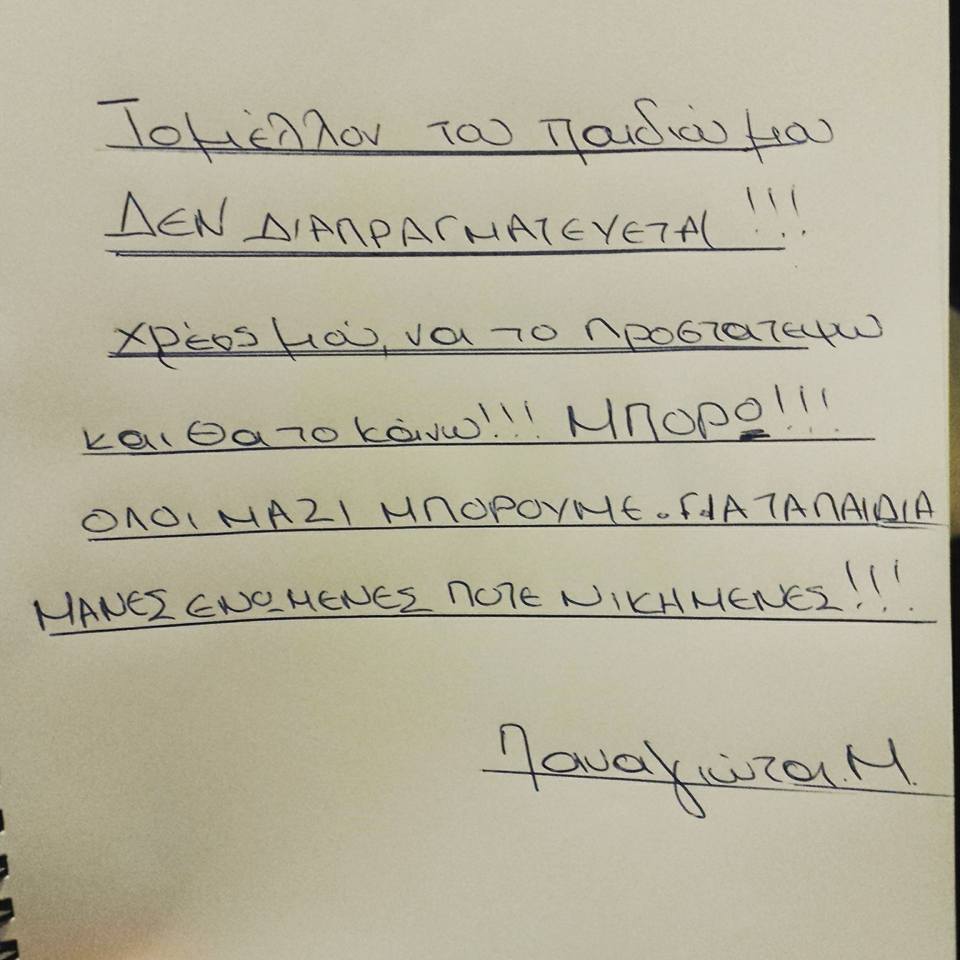 Το μέλλον του παιδιού μου
ΔΕΝ ΔΙΑΠΡΑΓΜΑΤΕΥΕΤΑΙ!!!
χρέος μού, να το προστατεψω
και θα το κάνω!!! ΜΠΟΡΩ!!!
ΟΛΟΙ ΜΑΖΙ ΜΠΟΡΟΥΜΕ. ΓΙΑ ΤΑ ΠΑΙΔΙΑ
ΜΑΝΕΣ ΕΝΩΜΕΝΕΣ ΠΟΤΕ ΝΙΚΗΜΕΝΕΣ!!!
Παναγιώτα. Μ.